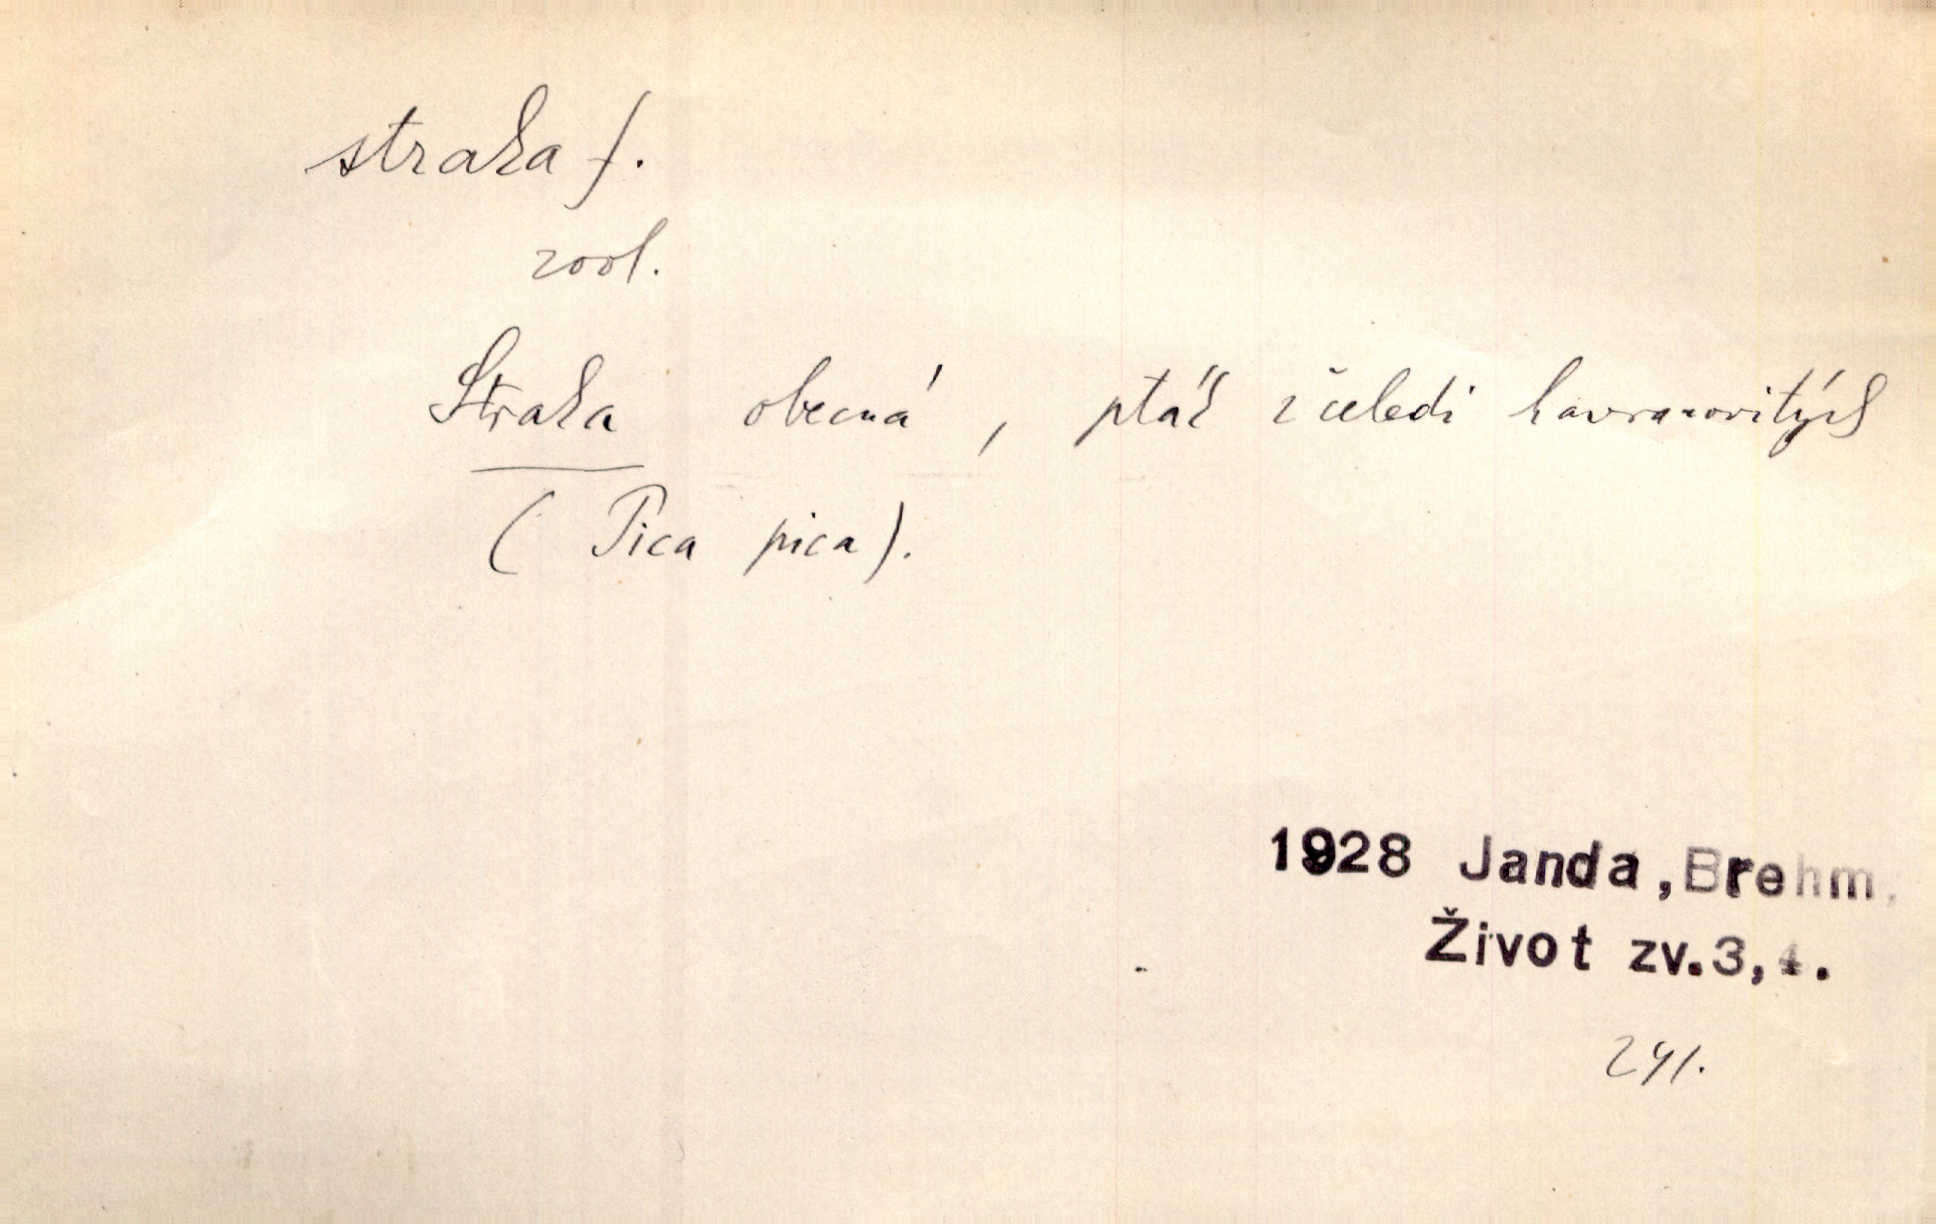 straka f.
zool.
Straka obecná, pták z čeledi havranovitých
(Pica pica).
1928 Janda, Brehm,
Život zv.3,4.
241.